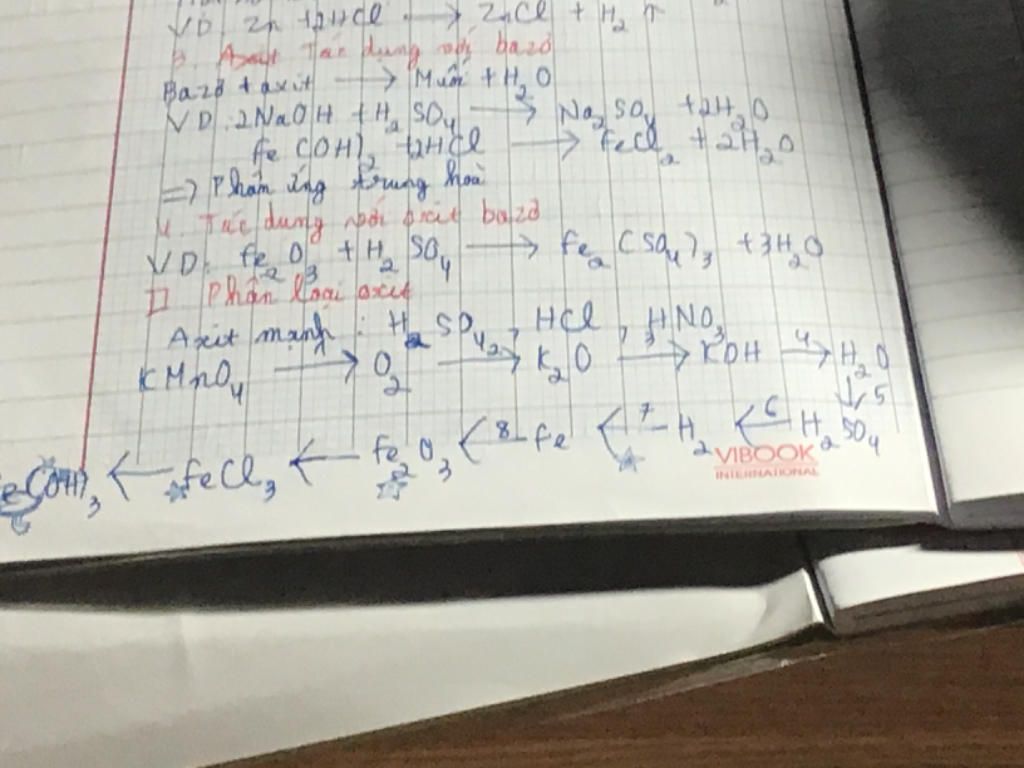 VD: Zn + 2HCl → ZnCl + H₂ ↑
3. Axit Tác dụng với bazơ
Bazơ + axit → Muối + H₂O
VD: 2NaOH + H₂SO₄ → Na₂SO₄ + 2H₂O
Fe(OH)₂ + 2HCl → FeCl₂ + 2H₂O
=> Phản ứng trung hoà
4. Tác dụng với oxit bazơ
VD: Fe₂O₃ + H₂SO₄ → Fe₂(SO₄)₃ + 3H₂O
II Phân loại axit
Axit mạnh: H₂SO₄, HCl, HNO₃
KMnO₄ —1→ O₂ —2→ K₂O —3→ KOH —4→ H₂O
↓ 5
Fe(OH)₃ ← FeCl₃ ← Fe₂O₃ ←8— Fe ←7— H₂ ←6— H₂SO₄
VIBOOK
INTERNATIONAL